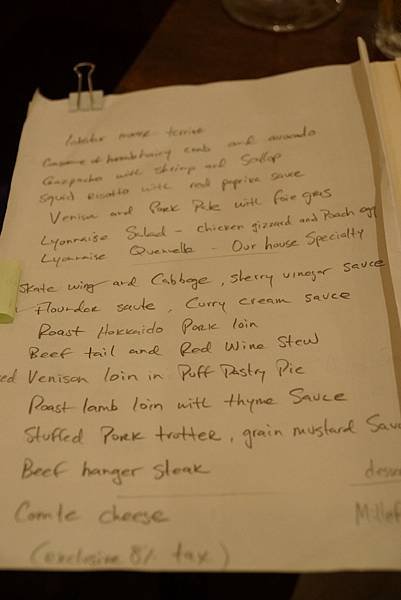 lobster terrine
Gaspacho with shrimp and Scallop
Squid Risotto with red paprika sauce
Venison and Pork Pate with foie gras
Lyonnaise Salad - chicken gizzard and Poach egg
Lyonnaise Quenelle - Our house Specialty
Skate wing and Cabbage, Sherry vinegar sauce
Flounder saute, Curry cream sauce
Roast Hokkaido Pork loin
Beef tail and Red Wine Stew
ed Venison loin in Puff Pastry Pie
Roast lamb loin with thyme Sauce
Stuffed Pork trotter, grain mustard Sauc
Beef hanger Steak
dess
Comte cheese
Millef
(exclusive 8% tax)